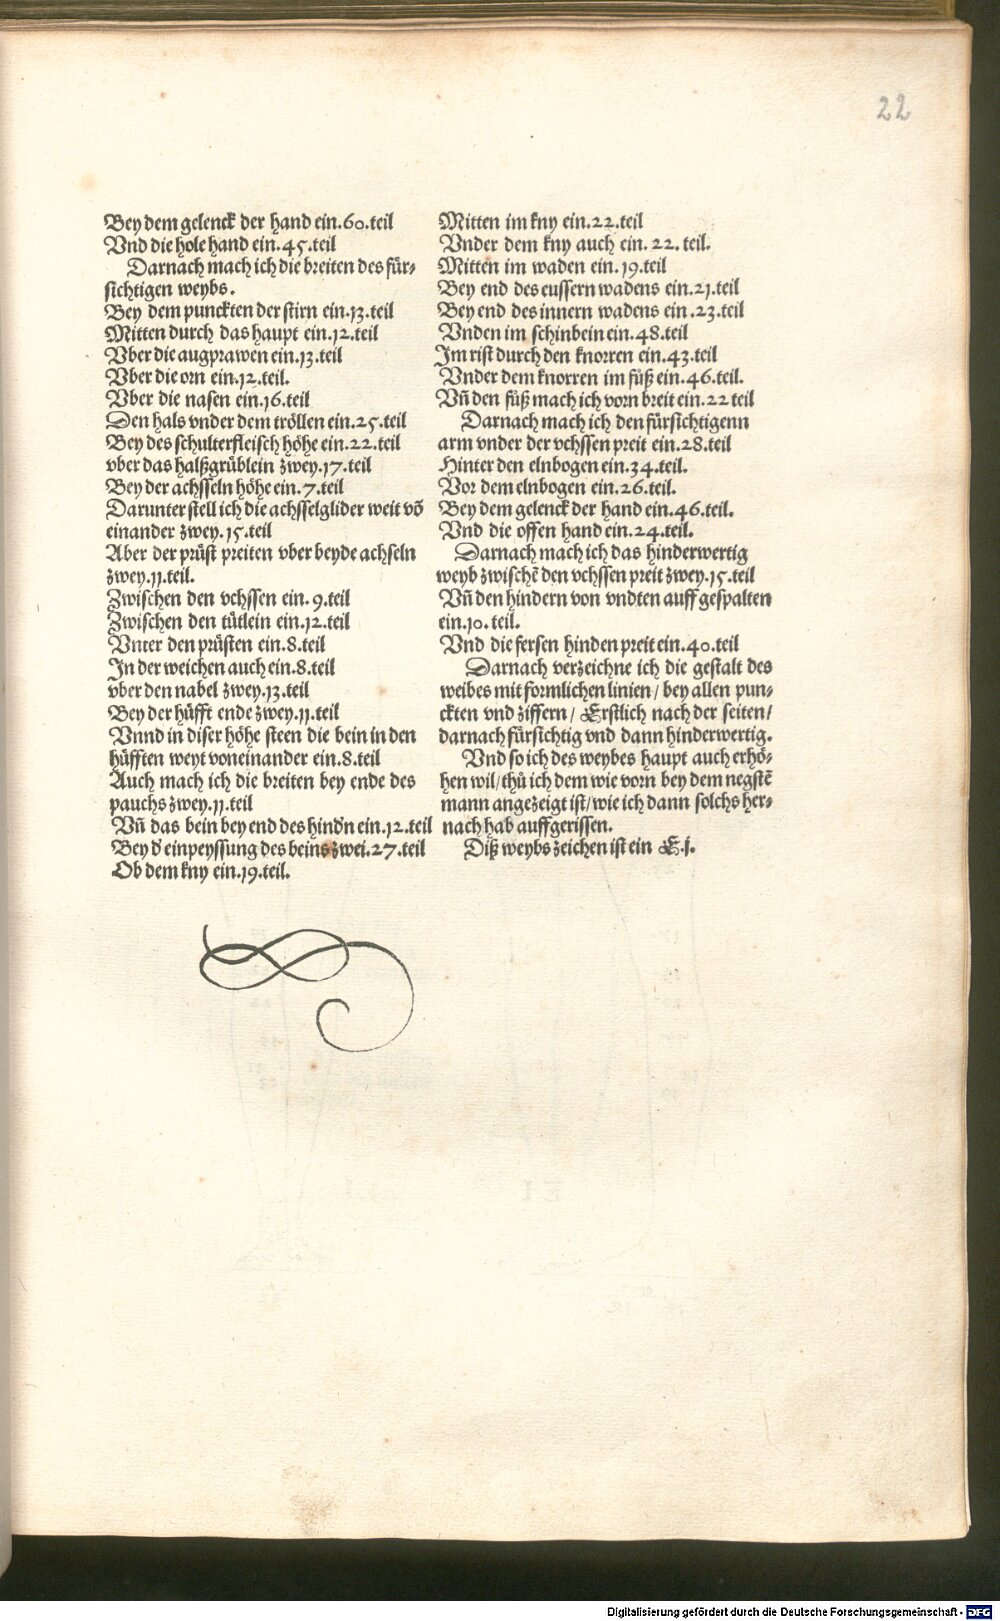 22
Bey dem gelenck der hand ein.60.teil
Vnd die hole hand ein.45.teil
Darnach mach ich die breiten des für-
sichtigen weybs.
Bey dem punckten der stirn ein.13.teil
Mitten durch das haupt ein.12.teil
Vber die augprawen ein.13.teil
Vber die orn ein.12.teil.
Vber die nasen ein.16.teil
Den hals vnder dem tröllen ein.25.teil
Bey des schulterfleisch höhe ein.22.teil
vber das halßgrüblein zwey.17.teil
Bey der achsseln höhe ein.7.teil
Darunter stell ich die achsselglider weit võ
einander zwey.15.teil
Aber der prüst preiten vber beyde achseln
zwey.11.teil.
Zwischen den vchssen ein.9.teil
Zwischen den tütlein ein.12.teil
Vnter den prüsten ein.8.teil
In der weichen auch ein.8.teil
vber den nabel zwey.13.teil
Bey der hüfft ende zwey.11.teil
Vnnd in diser höhe steen die bein in den
hüfften weyt voneinander ein.8.teil
Auch mach ich die breiten bey ende des
pauchs zwey.11.teil
Vñ das bein bey end des hindn ein.12.teil
Bey d einpeyssung des beins zwei.27.teil
Ob dem kny ein.19.teil.
Mitten im kny ein.22.teil
Vnder dem kny auch ein.22.teil.
Mitten im waden ein.19.teil
Bey end des eussern wadens ein.21.teil
Bey end des innern wadens ein.23.teil
Vnden im schinbein ein.48.teil
Im rist durch den knorren ein.43.teil
Vnder dem knorren im füß ein.46.teil.
Vñ den füß mach ich vorn breit ein.22 teil
Darnach mach ich den fürsichtigenn
arm vnder der vchssen preit ein.28.teil
Hinter den elnbogen ein.34.teil.
Vor dem elnbogen ein.26.teil.
Bey dem gelenck der hand ein.46.teil.
Vnd die offen hand ein.24.teil.
Darnach mach ich das hinderwertig
weyb zwischẽ den vchssen preit zwey.15.teil
Vñ den hindern von vndten auff gespalten
ein.10.teil.
Vnd die fersen hinden preit ein.40.teil
Darnach verzeichne ich die gestalt des
weibes mit formlichen linien/ bey allen pun-
ckten vnd ziffern/ Erstlich nach der seiten/
darnach fürsichtig vnd dann hinderwertig.
Vnd so ich des weybes haupt auch erhö-
hen wil/ thů ich dem wie vorn bey dem negstẽ
mann angezeigt ist/ wie ich dann solchs her-
nach hab auffgerissen.
Diß weybs zeichen ist ein E.j.
Digitalisierung gefördert durch die Deutsche Forschungsgemeinschaft - DFG